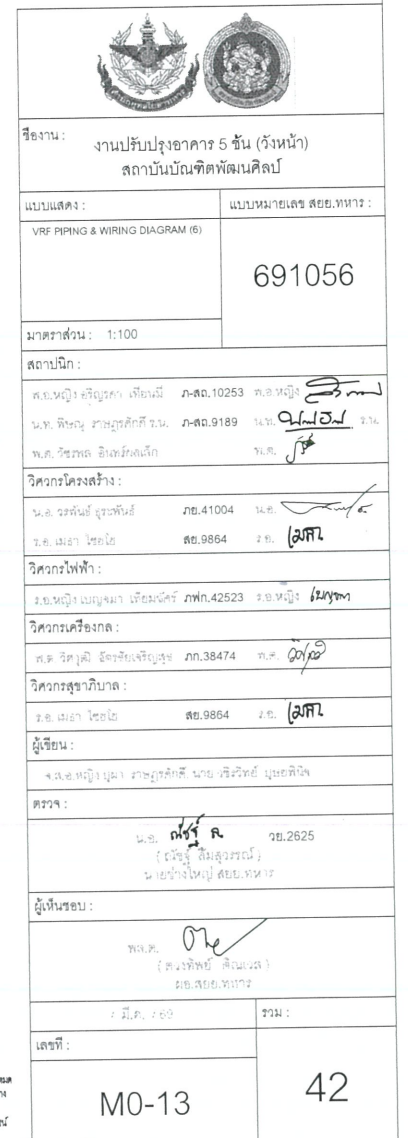 ชื่องาน :
งานปรับปรุงอาคาร 5 ชั้น (วังหน้า)
สถาบันบัณฑิตพัฒนศิลป์
แบบแสดง :
แบบหมายเลข สยย.ทหาร :
VRF PIPING & WIRING DIAGRAM (6)
691056
มาตราส่วน : 1:100
สถาปนิก :
พ.อ.หญิง ภ-สถ.10253 พ.อ.หญิง
น.ท. พิษณุ ราษฎรศักดิ์ ร.น. ภ-สถ.9189 น.ท. ร.น.
พ.ต. วัชรพล พ.ต.
วิศวกรโครงสร้าง :
น.อ. วรพันธ์ ภย.41004 น.อ.
ร.อ. เมธา ไชยโย สย.9864 ร.อ. เมธา
วิศวกรไฟฟ้า :
ร.อ.หญิง เบญจมา ภฟก.42523 ร.อ.หญิง เบญจมา
วิศวกรเครื่องกล :
พ.ต. ภก.38474 พ.ต.
วิศวกรสุขาภิบาล :
ร.อ. เมธา ไชยโย สย.9864 ร.อ. เมธา
ผู้เขียน :
จ.ส.อ.หญิง บุผา ราษฎรศักดิ์, นาย
ตรวจ :
น.อ. ณัชฐ์ ล. วย.2625
( ณัชฐ์ ลิ้มสุวรรณ์ )
นายช่างใหญ่ สยย.ทหาร
ผู้เห็นชอบ :
พล.ต.
ผอ.สยย.ทหาร
มี.ค. 69
รวม :
เลขที่ :
M0-13
42